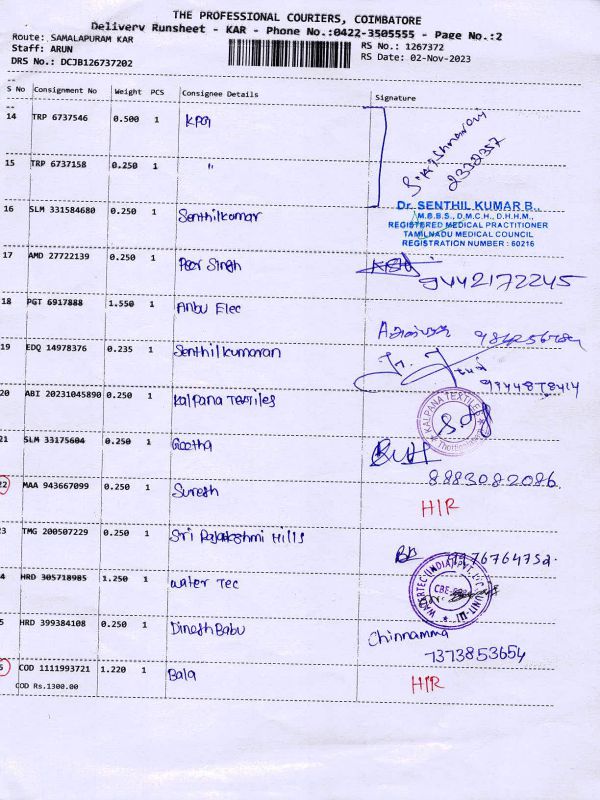 THE PROFESSIONAL COURIERS, COIMBATORE
Delivery Runsheet - KAR - Phone No.:0422-3505555 - Page No.:2
Route: SAMALAPURAM KAR
Staff: ARUN
DRS No.: DCJB126737202
RS No.: 1267372
RS Date: 02-Nov-2023
S No Consignment No Weight PCS Consignee Details Signature
14 TRP 6737546 0.500 1 KPG
15 TRP 6737158 0.250 1 "
2332357
16 SLM 331584680 0.250 1 Senthilkumar
Dr. SENTHIL KUMAR B.,
M.B.B.S., D.M.C.H., D.H.H.M.,
REGISTERED MEDICAL PRACTITIONER
TAMILNADU MEDICAL COUNCIL
REGISTRATION NUMBER : 60216
17 AMD 27722139 0.250 1 Peer Singh 9442172245
18 PGT 6917888 1.550 1 Anbu Elec
19 EDQ 14978376 0.235 1 Senthilkumaran
20 ABI 20231045890 0.250 1 Kalpana Textiles
KALPANA TEXTILES
21 SLM 33175604 0.250 1 Geetha
8883082086
22 MAA 943667099 0.250 1 Suresh HIR
23 TMG 200507229 0.250 1 Sri Rajalakshmi Hills
4 HRD 305718985 1.250 1 Water Tec
WATERTEC (INDIA) PVT. LTD. UNIT-III
5 HRD 399384108 0.250 1 Dinesh Babu Chinnamma
7373853654
6 COD 1111993721 1.220 1 Bala HIR
COD Rs.1300.00